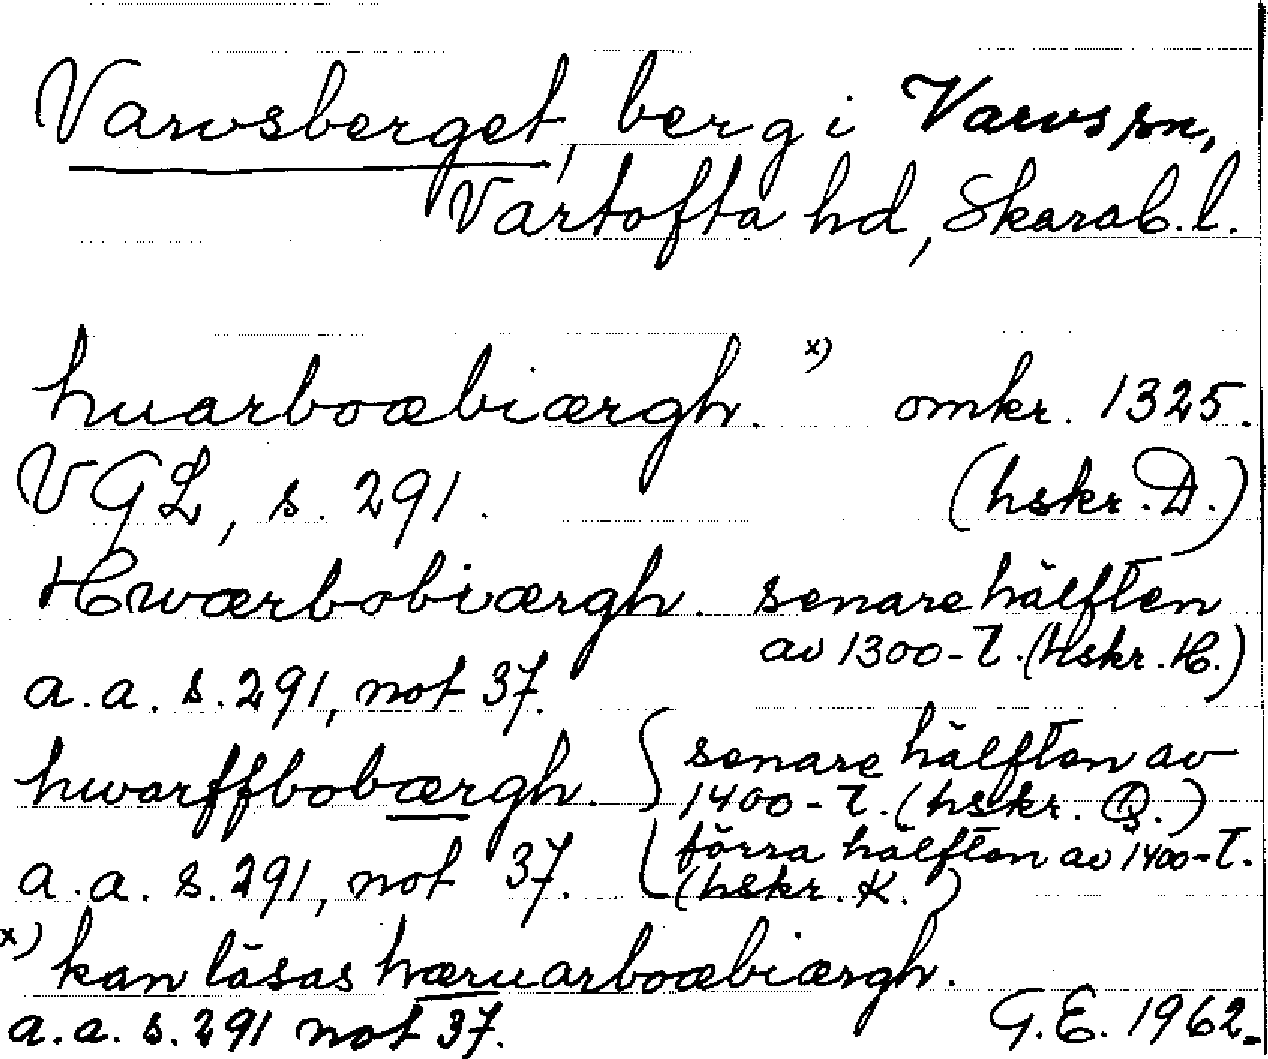 Varvsberget, berg i Varvs sn,
Vartofta hd, Skarab. l.
huarboæbiærgh. x) omkr. 1325.
VGL, s. 291. (hskr. D.)
Hwærbobiærgh. senare hälften
av 1300-t. (Hskr. H.)
a.a. s. 291, not 37.
hwarffbobærgh. senare hälften av
1400-t. (hskr. Q.)
förra hälften av 1400-t.
a.a. s. 291, not 37. (hskr. K.)
x) kan läsas hæruarboæbiærgh.
a.a. s. 291 not 37. G.E. 1962.